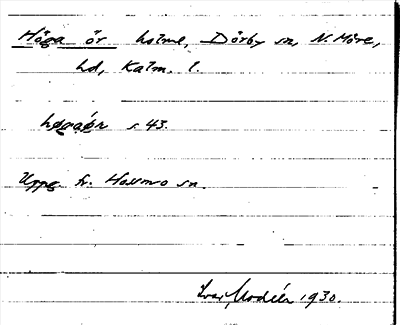 Höga ör holme, Dörby sn, N. Möre,
hd, Kalm. l.
s. 43.
Uppg. fr. Hossmo sn.
Ivar Modéer 1930.